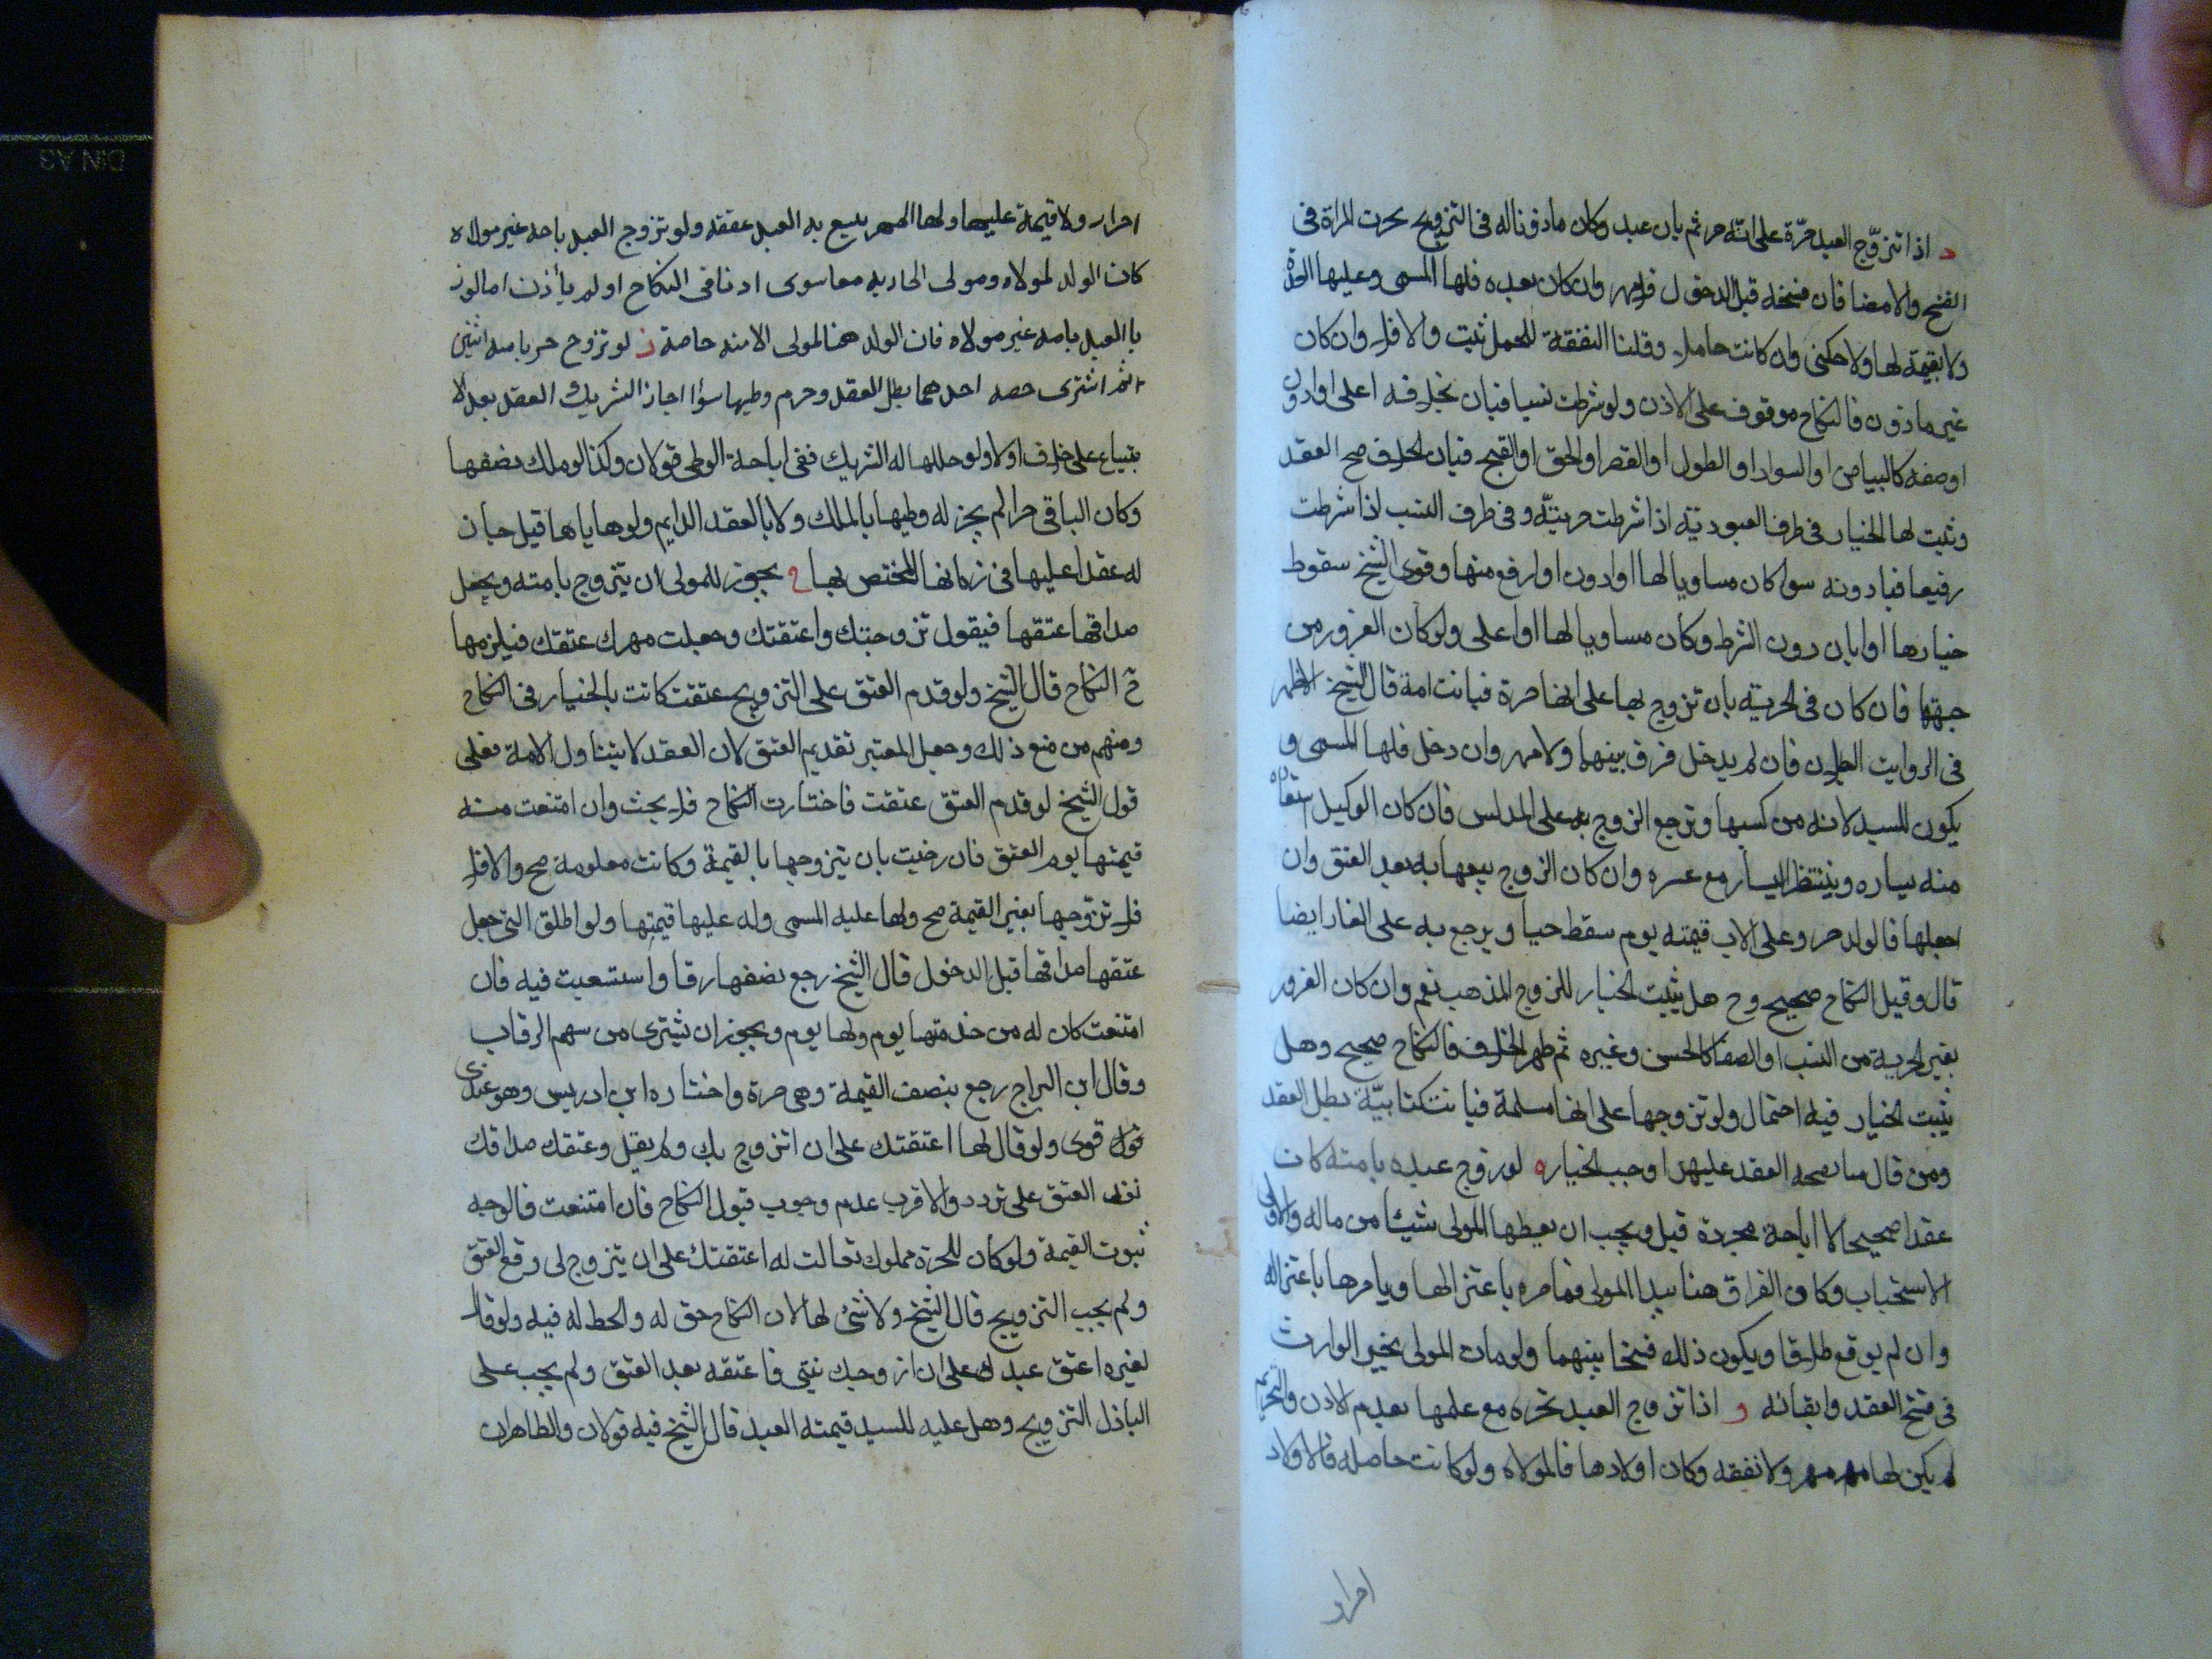 د اذا تزوّج العبد حرّة على انّه حر ثم بان عبد وكان ماذوناله فى التزويج تحرت المراة فى
الفسخ والامضا فان فسخه قبل الدخول فلا مهر وان كان بعده فلها المسمى وعليها العدة
ولا بقيمة لها ولا حكنى وان كانت حاملا وقلنا النفقة للحمل ثبت والا فلا وان كان
غير ماذون فالنكاح موقوف على الاذن ولو شرطت نسبا فبان بخلافه اعلى او ادون
او صفه كالبياض او السواد او الطول او القصر او الحق او القبح فبان الخلاف صح العقد
وثبت لها الخيار فى طرف العبودية اذا شرطت حريتّه وفى طرف النسب اذا شرطت
رفيعا فبادونه سوا كان مساويا لها او ادون او ارفع منها وقوى الشيخ سقوط
خيارها او ابان دون الشرط وكان مساويا لها او اعلى ولو كان الغرور من
جهتها فان كان فى الحرية بان تزوج بها على انها حرة فبانت امة قال الشيخ الاظهر
فى الروايت البطلان فان لم يدخل فرق بينهما ولا مهر وان دخل فلها المسمى و
يكون للسيد لانه من كسبها ويرجع الزوج به على المدلس فان كان الوكيل استوفاه
منه بيساره وينتظر اليسار مع عسره وان كان الزوج يبيعها به بعد العتق وان
احبلها فالولد حر وعلى الاب قيمته يوم سقط حيا ويرجع به على الغار ايضا
قال وقيل النكاح صحيح وح هل يثبت الخيار للزوج المذهب نعم وان كان الغرور
بغير الحرية من النسب او الصفا كالحسن وغيره ثم ظهر الخلاف فالنكاح صحيح وهل
يثبت الخيار فيه احتمال ولو تزوجها على انها مسلمة فبانت كتابيّة بطل العقد
ومن قال منا بصحه العقد عليهن اوجب الخيار ه لو زوج عبده بامته كان
عقدا صحيحا لا اباحة مجردة قيل ويجب ان يعطها المولى شيئا من ماله والاولى
الاستحباب وكان الفراق هنا بيد المولى فيامره باعتزالها ويامرها باعتزاله
وان لم يوقع طلاقا ويكون ذلك فسخا بينهما ولو مات المولى يخير الوارث
فى فسخ العقد وابقائه و اذا تزوج العبد بحره مع علمها بعدم الاذن والتحريم
لم يكن لها مهر ولا نفقه وكان اولادها فالمولاه ولو كانت حاصله فالاولاد
احرار
احرار ولا قيمة عليها ولها المهر يبيع به العبد عققه ولو تزوج العبد باحة غير مولاه
كان الولد لمولاه ومولى الجاريه معا سوى اذنا فى النكاح او لم ياذنا اما لو زنا
با العبد بامه غير مولاه فان الولد هنا لمولى الامنه خاصة ز لو تزوج حر بامه اثنين
ثم اشترى حصه احدهما بطل العقد وحرم وطيها سؤا اجاز الشريك العقد بعد الا
بتياع على خلاف اولا ولو حللها له الشريك ففى اباحة الوطى قولان وكذا لو ملك نصفها
وكان الباقى حرا لم يجز له وطيها بالملك ولا بالعقد الدايم ولو هاياها قيل جاز
له عقدا عليها فى زمانها المختص بها ح يجوز للمولى ان يتزوج بامته ويجعل
صداقها عتقها فيقول تزوجتك واعتقتك وجعلت مهرك عتقك فيلزمها
ح النكاح قال الشيخ ولو قدم العتق على التزويج عتقت كانت بالخيار فى النكاح
ومنهم من منع ذلك وجعل المعتبر تقديم العتق لان العقد لا يتناول الامة فعلى
قول الشيخ لو قدم العتق عتقت فاختارت النكاح فلا بحث وان امتنعت منه
قيمتها يوم العتق فان رضيت بان يتزوجها بالقيمة وكانت معلومة صح والا فلا
فلا تزوّجها بغير القيمة صح ولها عليه المسمى وله عليها قيمتها ولو اطلق التى جعل
عتقها صداقها قبل الدخول قال الشيخ رجع نصفها رقا واستسعيت فيه فان
امتنعت كان له من خدمتها يوم ولها يوم ويجوز ان تشترى من سهم الرقاب
وقال ابن البراج رجع بنصف القيمة وهى حرة واختاره ابن ادريس وهو عندى
قول قوى ولو قال لها اعتقتك على ان اتزوج بك ولم يقل وعتقك صداقك
نفد العتق على تردد والاقرب عدم وجوب قبول النكاح فان امتنعت فالوجه
ثبوت القيمة ولو كان للحرة مملوك فقالت له اعتقتك على ان يتزوج لى وقع العتق
ولم يجب التزويج قال الشيخ ولا شئ لها لان النكاح حق له والحط له فيه ولو قال
لغيره اعتق عبدك على ان ازوجك بنتى فاعتقه بعد العتق ولم يجب على
الباذل التزويج وهل عليه للسيد قيمته العبد قال الشيخ فيه قولان والظاهران